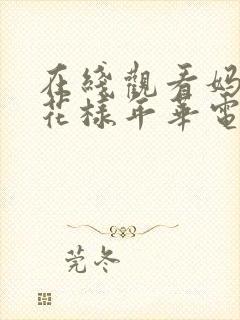 在綫觀看妈
花樣年華電
莞冬